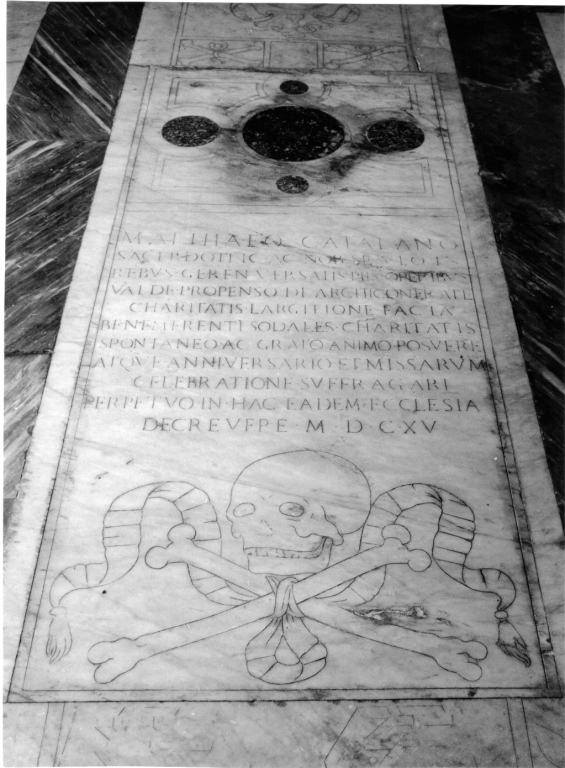 MATTHAEO CATALANO
SACERDOTI
REBVS GEREN VERSATIS
VALDE PROPENSO DE ARCHICONFR
CHARITATIS LARGITIONE FACTA
BENEMERENTI SODALES CHARITATIS
SPONTANEO AC GRATO ANIMO POSVERE
ATQVE ANNIVERSARIO ET MISSARVM
CELEBRATIONE SVFFRAGARI
PERPETVO IN HAC EADEM ECCLESIA
DECREVERE M D C XV